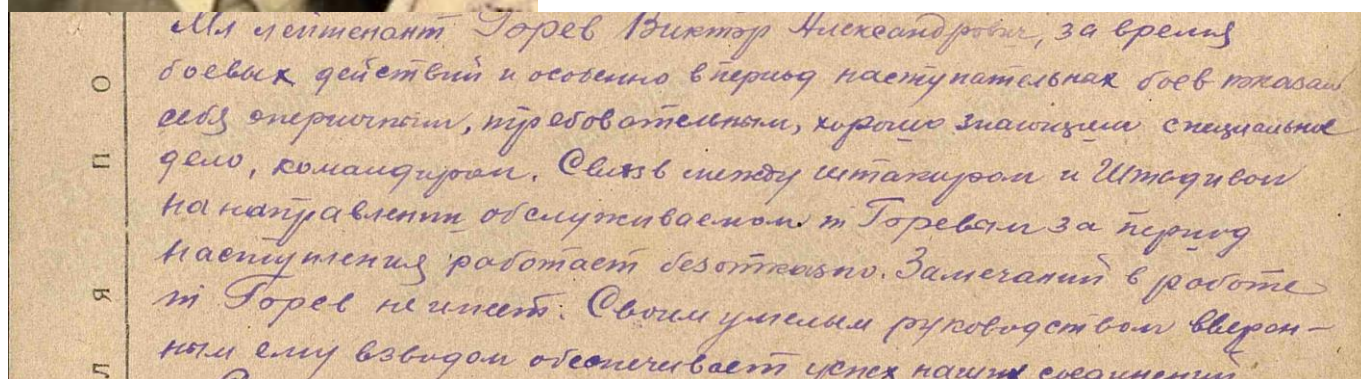 Мл лейтенант Горев Виктор Александрович, за время
боевых действий и особенно в период наступательных боев показал
себя энергичным, требовательным, хорошо знающим специальное
дело, командиром. Связь между штакором и Штадивом
на направлении обслуживаемом т Горевым за период
наступления работает безотказно. Замечаний в работе
т Горев не имеет. Своим умелым руководством вверен-
ным ему взводом обеспечивает успех наших соединений
О
П
Я
Л